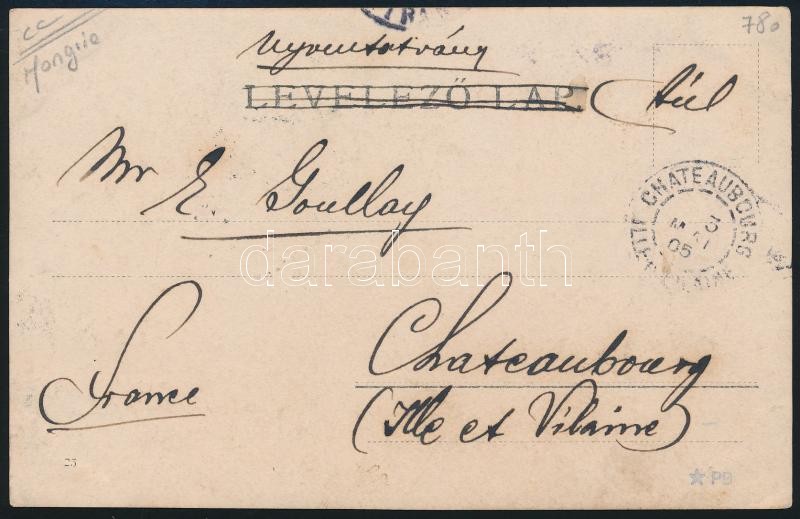 TRAN
cc
Hongrie
780
Nyomtatvány
LEVELEZŐ LAP.
(túl
Mr E. Goullay
CHATEAUBOURG
3
MAI
05
ILLE-ET-VILAINE
darabanth
France
Chateaubourg
(Ille et Vilaine)
23
PB